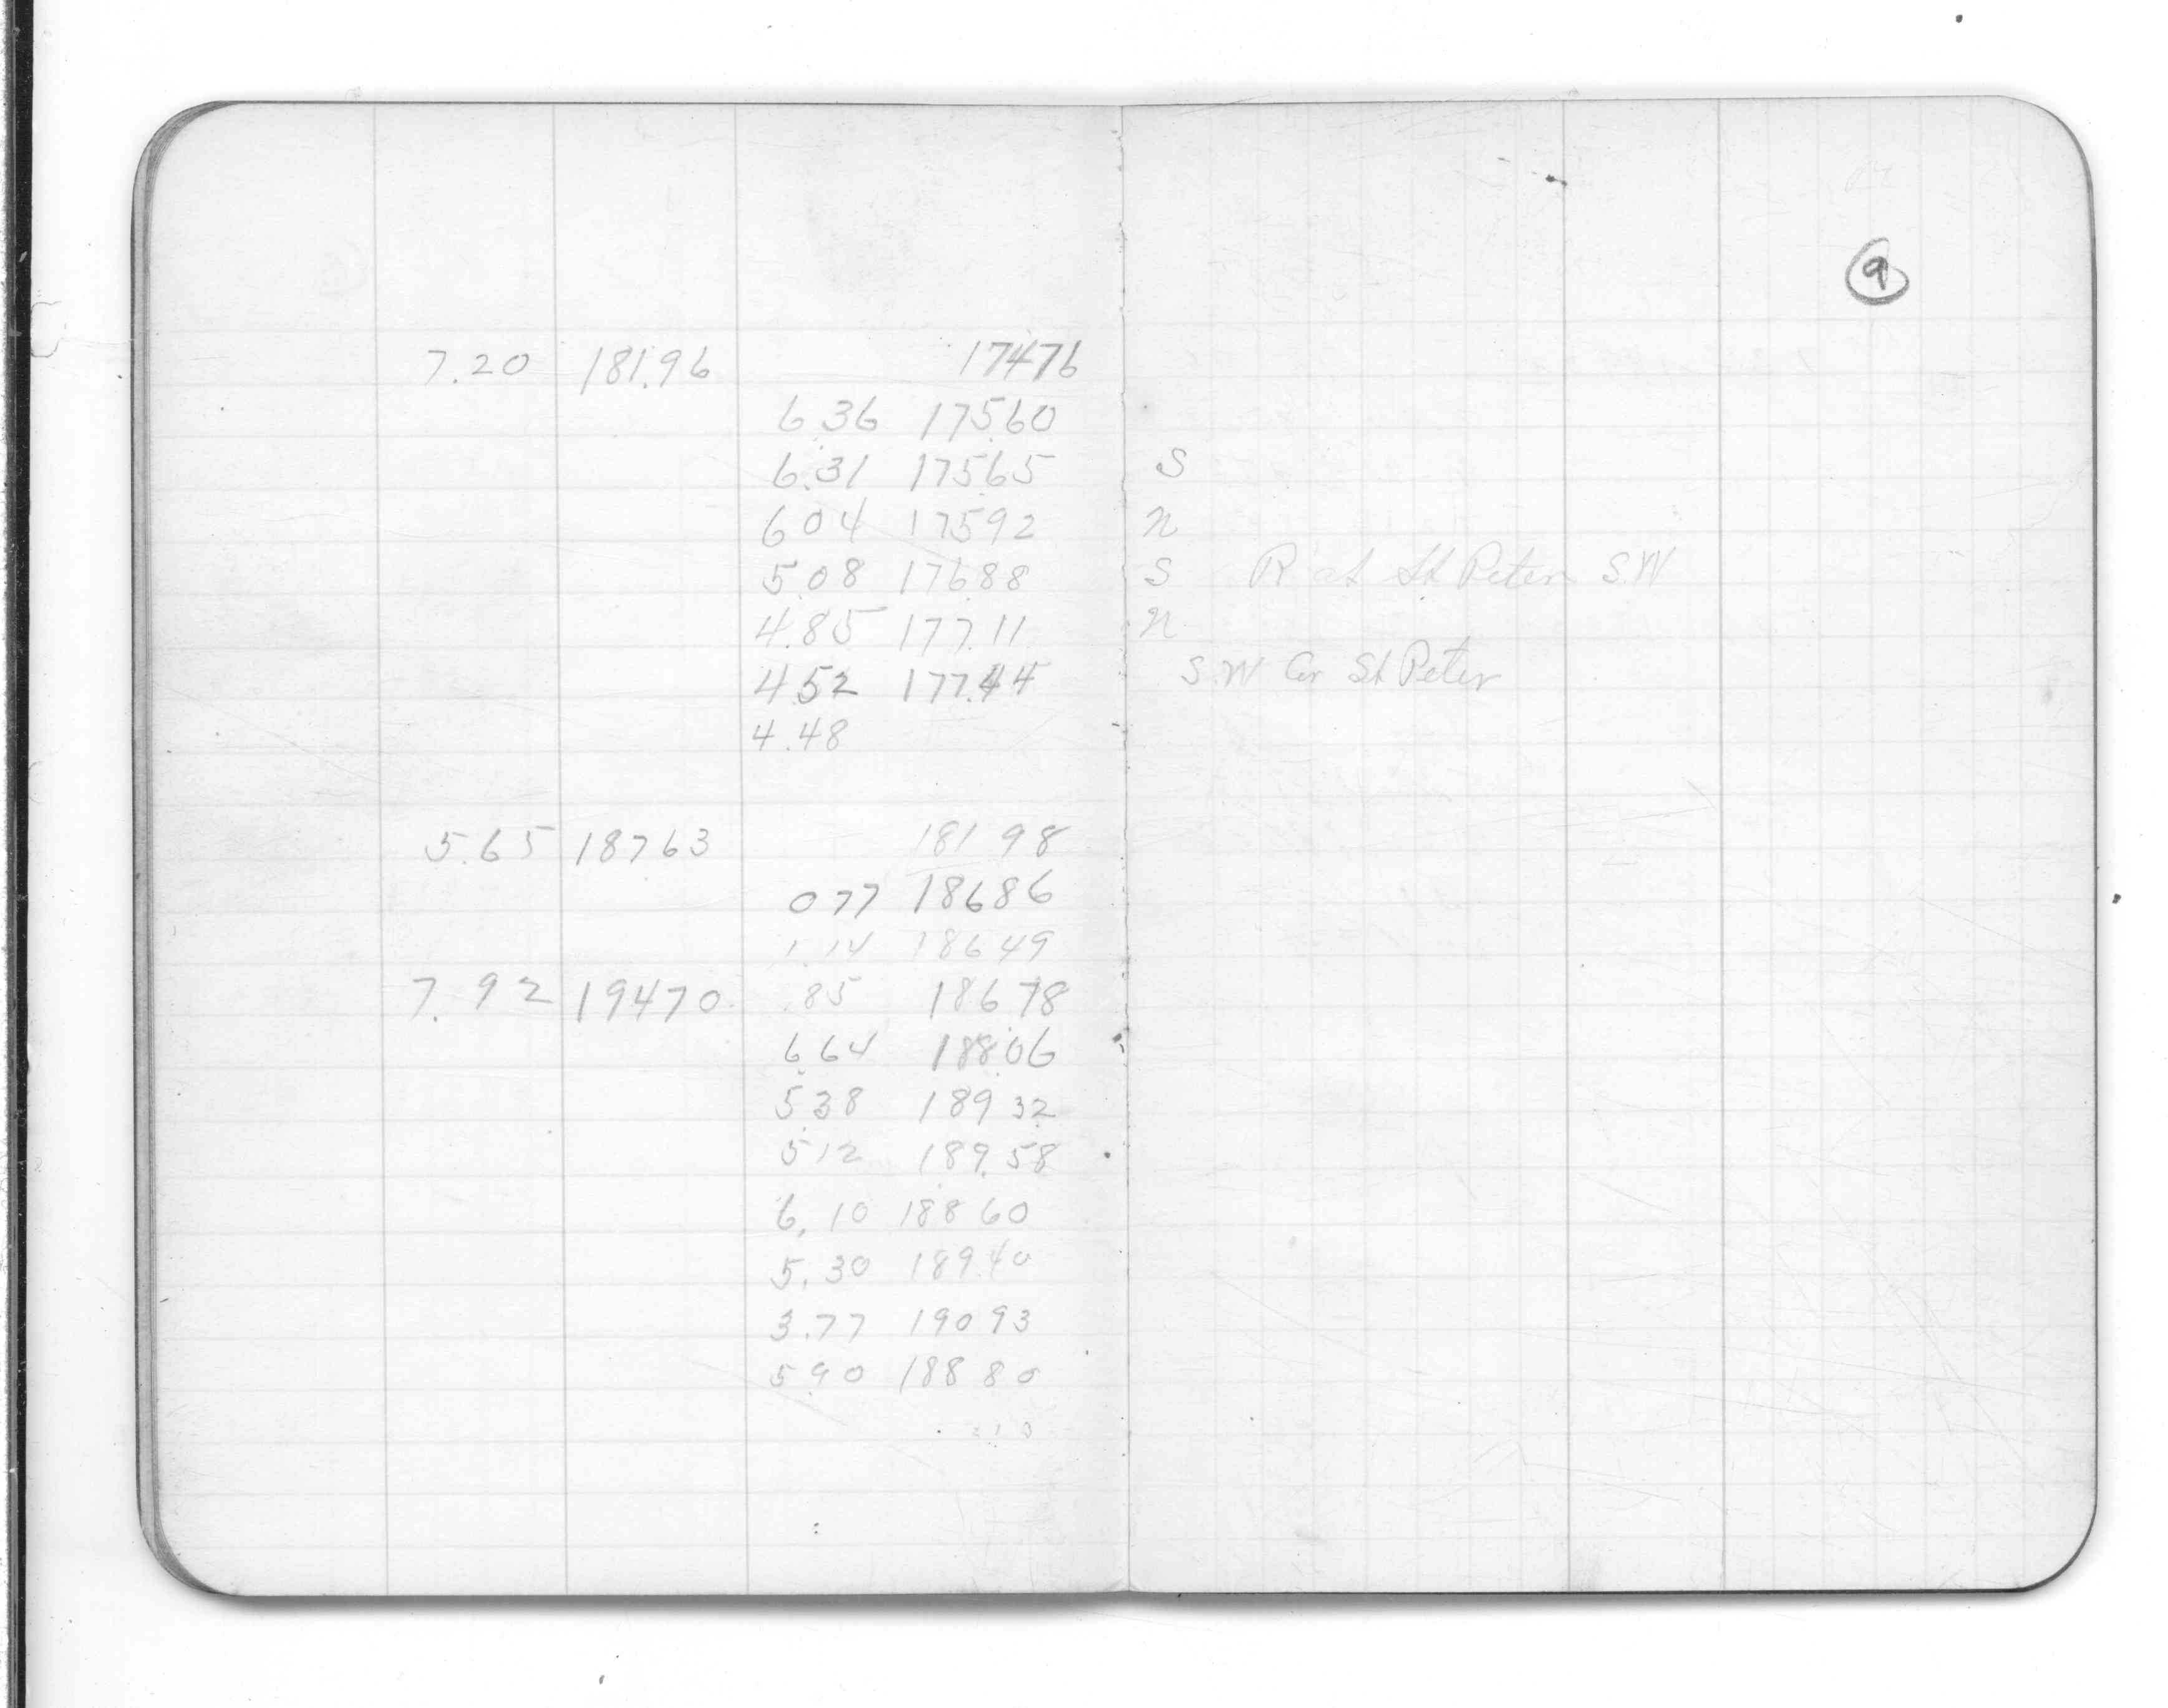 9
7.20 181.96 17476
6.36 175.60
6.31 175.65 S
604 17592 n
5.08 176.88 S R at St Peter S.W
4.85 177.11 n
4.52 177.44 S.W Cor St Peter
4.48
5.65 18763 181 98
077 18686
1.14 18649
7.92 19470 .85 186 78
6.64 188.06
5.38 189 32
512 189.58
6.10 188 60
5.30 189.40
3.77 190 93
590 188 80